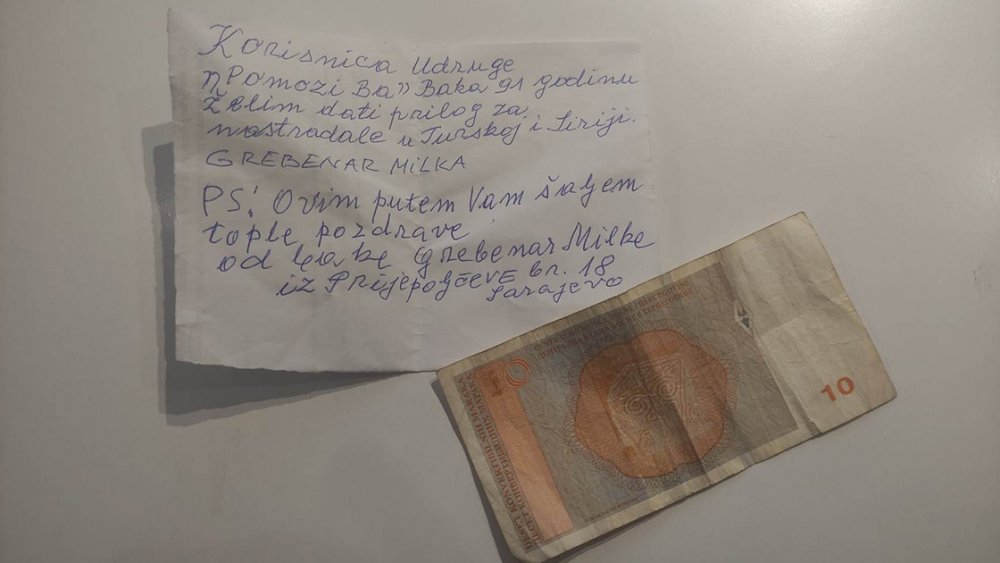 Korisnica Udruge
„Pomozi Ba” Baka 91 godinu
želim dati prilog za
nastradale u Turskoj i Siriji.
GREBENAR MILKA
PS! Ovim putem Vam šaljem
tople pozdrave
od bake Grebenar Milke
iz Prijepoljčeve br. 18
Sarajevo
10
10
DESET KONVERTIBILNIH MARAKA
ДЕСЕТ КОНВЕРТИБИЛНИХ МАРАКА